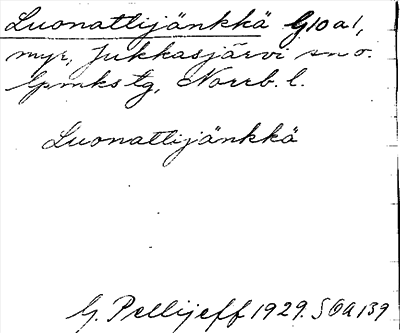 Luonattijänkkä G10a1,
myr, Jukkasjärvi sn o.
lpmkstg, Norrb. l.
Luonattijänkkä
G. Pellijeff 1929. SOA 139